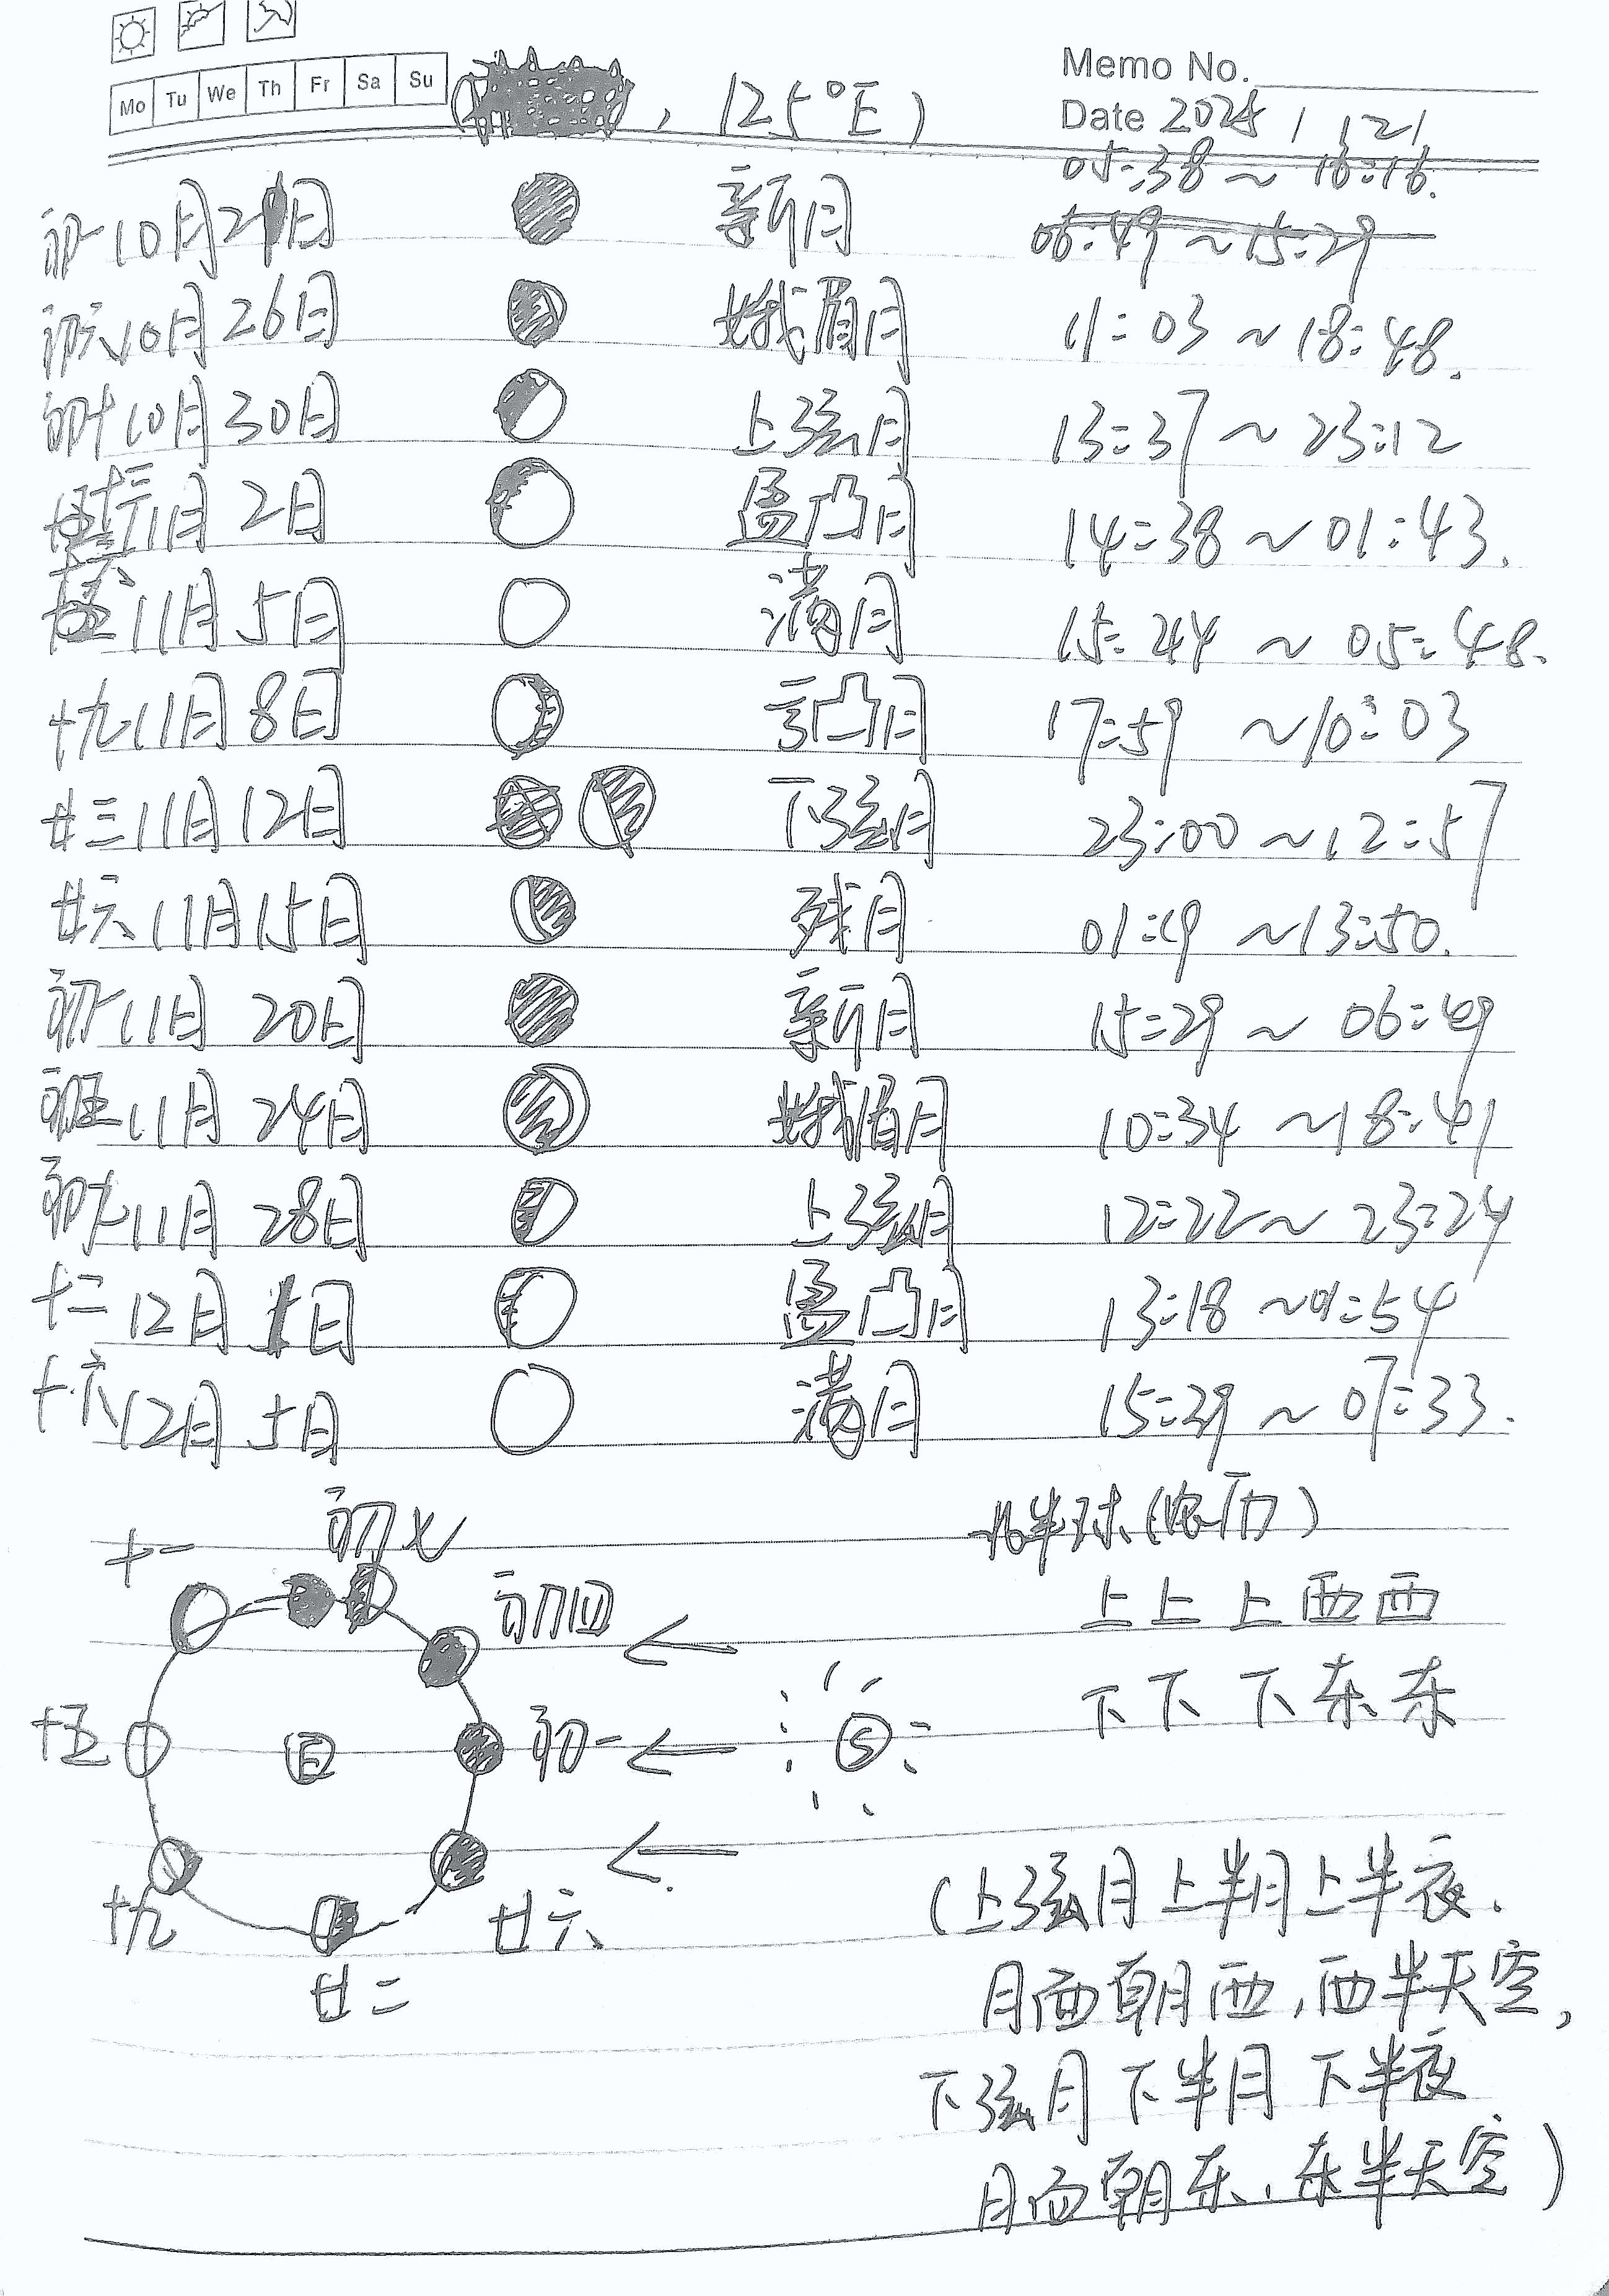 Mo Tu We Th Fr Sa Su
, 125°E)
Memo No.
Date 2025 / 1 21
初一10月21日 新月 05:38 ~ 16:16.
06:49 ~ 15:29
初六10月26日 娥眉月 11:03 ~ 18:48.
初十10月30日 上弦月 13:37 ~ 23:12
十三11月2日 盈凸月 14:38 ~ 01:43.
十六11月5日 满月 15:44 ~ 05:48.
十九11月8日 亏凸月 17:59 ~ 10:03
廿三11月12日 下弦月 23:00 ~ 12:57
廿六11月15日 残月 01:49 ~ 13:50.
初一11月20日 新月 15:29 ~ 06:49
初五11月24日 娥眉月 10:34 ~ 18:41
初九11月28日 上弦月 12:22 ~ 23:24
十二12月1日 盈凸月 13:18 ~ 01:54
十六12月5日 满月 15:29 ~ 07:33.
北半球(农历)
上上上西西
下下下东东
十一 初七
初四
十五 日 初一 S
十九 廿六
廿二
(上弦月上半月上半夜.
月面朝西,西半天空,
下弦月下半月下半夜
月面朝东,东半天空)